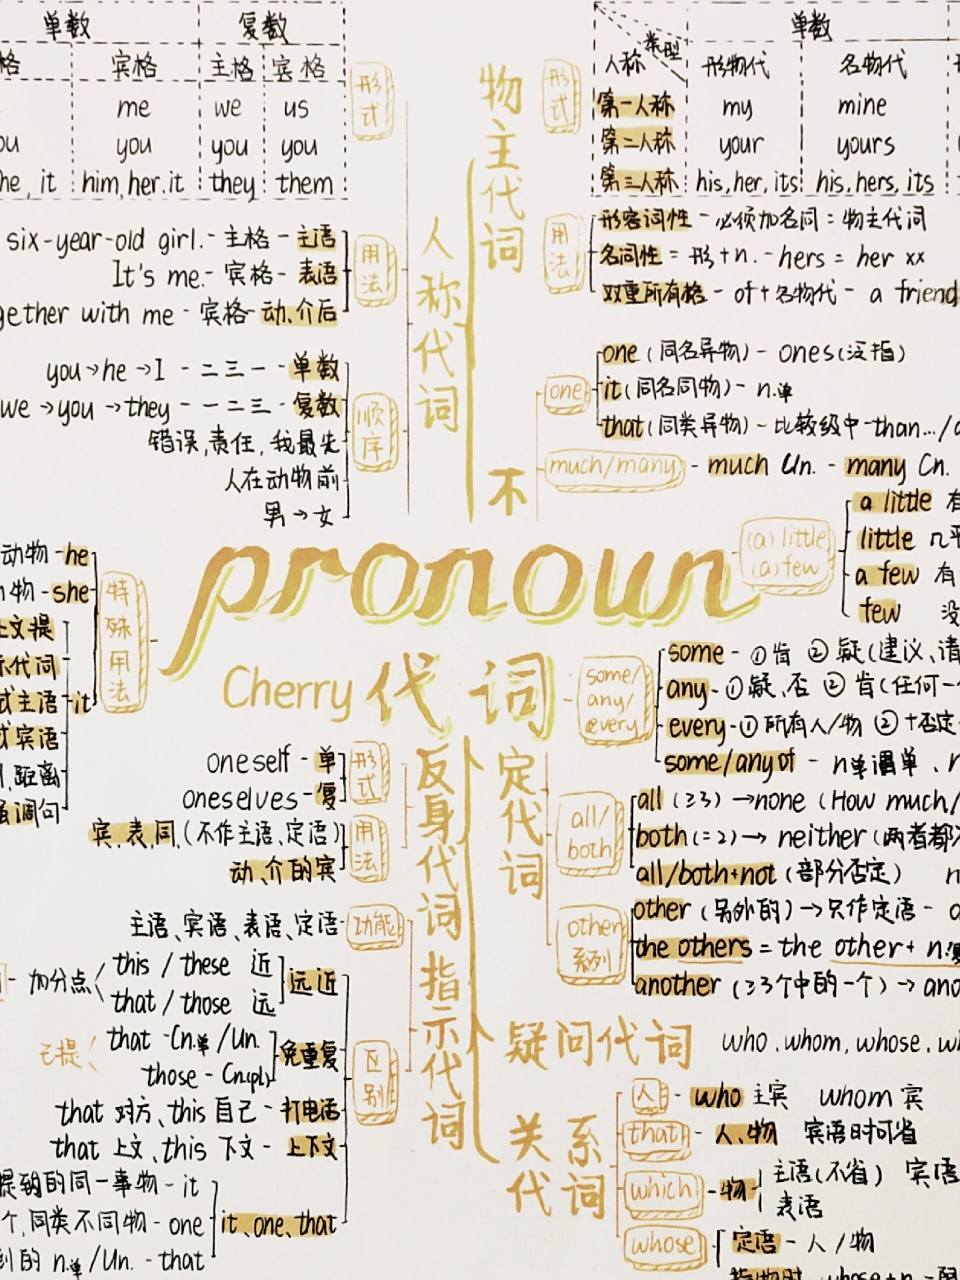 单数 复数
格 宾格 主格 宾格
me we us
ou you you you
he, it him,her.it they them
形式
six-year-old girl.- 主格 - 主语
It's me.- 宾格 - 表语
gether with me - 宾格- 动、介后
用法
you→he→I - 二三一 - 单数
we→you→they - 一二三 - 复数
错误,责任,我最先
人在动物前
男→女
顺序
人称代词
动物-he
物-she
上文提
示代词
式主语
式宾语
,距离
强调句
it
特殊用法
物主代词
形式
类型 单数
人称 形物代 名物代
第一人称 my mine
第二人称 your yours
第三人称 his,her,its his,hers,its
用法
形容词性 - 必须加名词 = 物主代词
名词性 = 形+n. - hers = her xx
双重所有格 - of+名物代 - a friend
不定代词
one
one (同名异物) - ones(泛指)
it(同名同物) - n.单
that(同类异物) - 比较级中-than.../
much/many - much Un. - many Cn.
(a) little
(a) few
a little 有
little 几乎
a few 有
few 没
pronoun
Cherry 代词
some/any/every
some - ①肯 ②疑(建议、请
any-①疑、否 ②肯(任何一
every-①所有人/物 ②+否定
some/any of - n单谓单、n
all/both
all (≥3) →none (How much/
both(=2)→ neither(两者都不
all/both+not (部分否定) n
other系列
other (另外的)→只作定语 - a
the others = the other + n.复
another (≥3个中的一个)→ ano
反身代词
形式
oneself - 单
oneselves - 复
用法
宾、表、同、(不作主语、定语)
动、介的宾
指示代词
功能
主语、宾语、表语、定语
区别
加分点 this / these 近
that / those 远
远近
已提 that -Cn.单/Un.
those - Cn(pl)
免重复
that 对方、this 自己 - 打电话
that 上文、this 下文 - 上下文
提到的同一事物 - it
个,同类不同物 - one
到的 n.单/Un. - that
it、one、that
疑问代词 who、whom、whose、wh
关系代词
人 - who 主宾 whom 宾
that - 人、物 宾语时可省
which - 物 主语(不省) 宾语
表语
whose 定语 - 人 / 物
指物时 whose+n.=